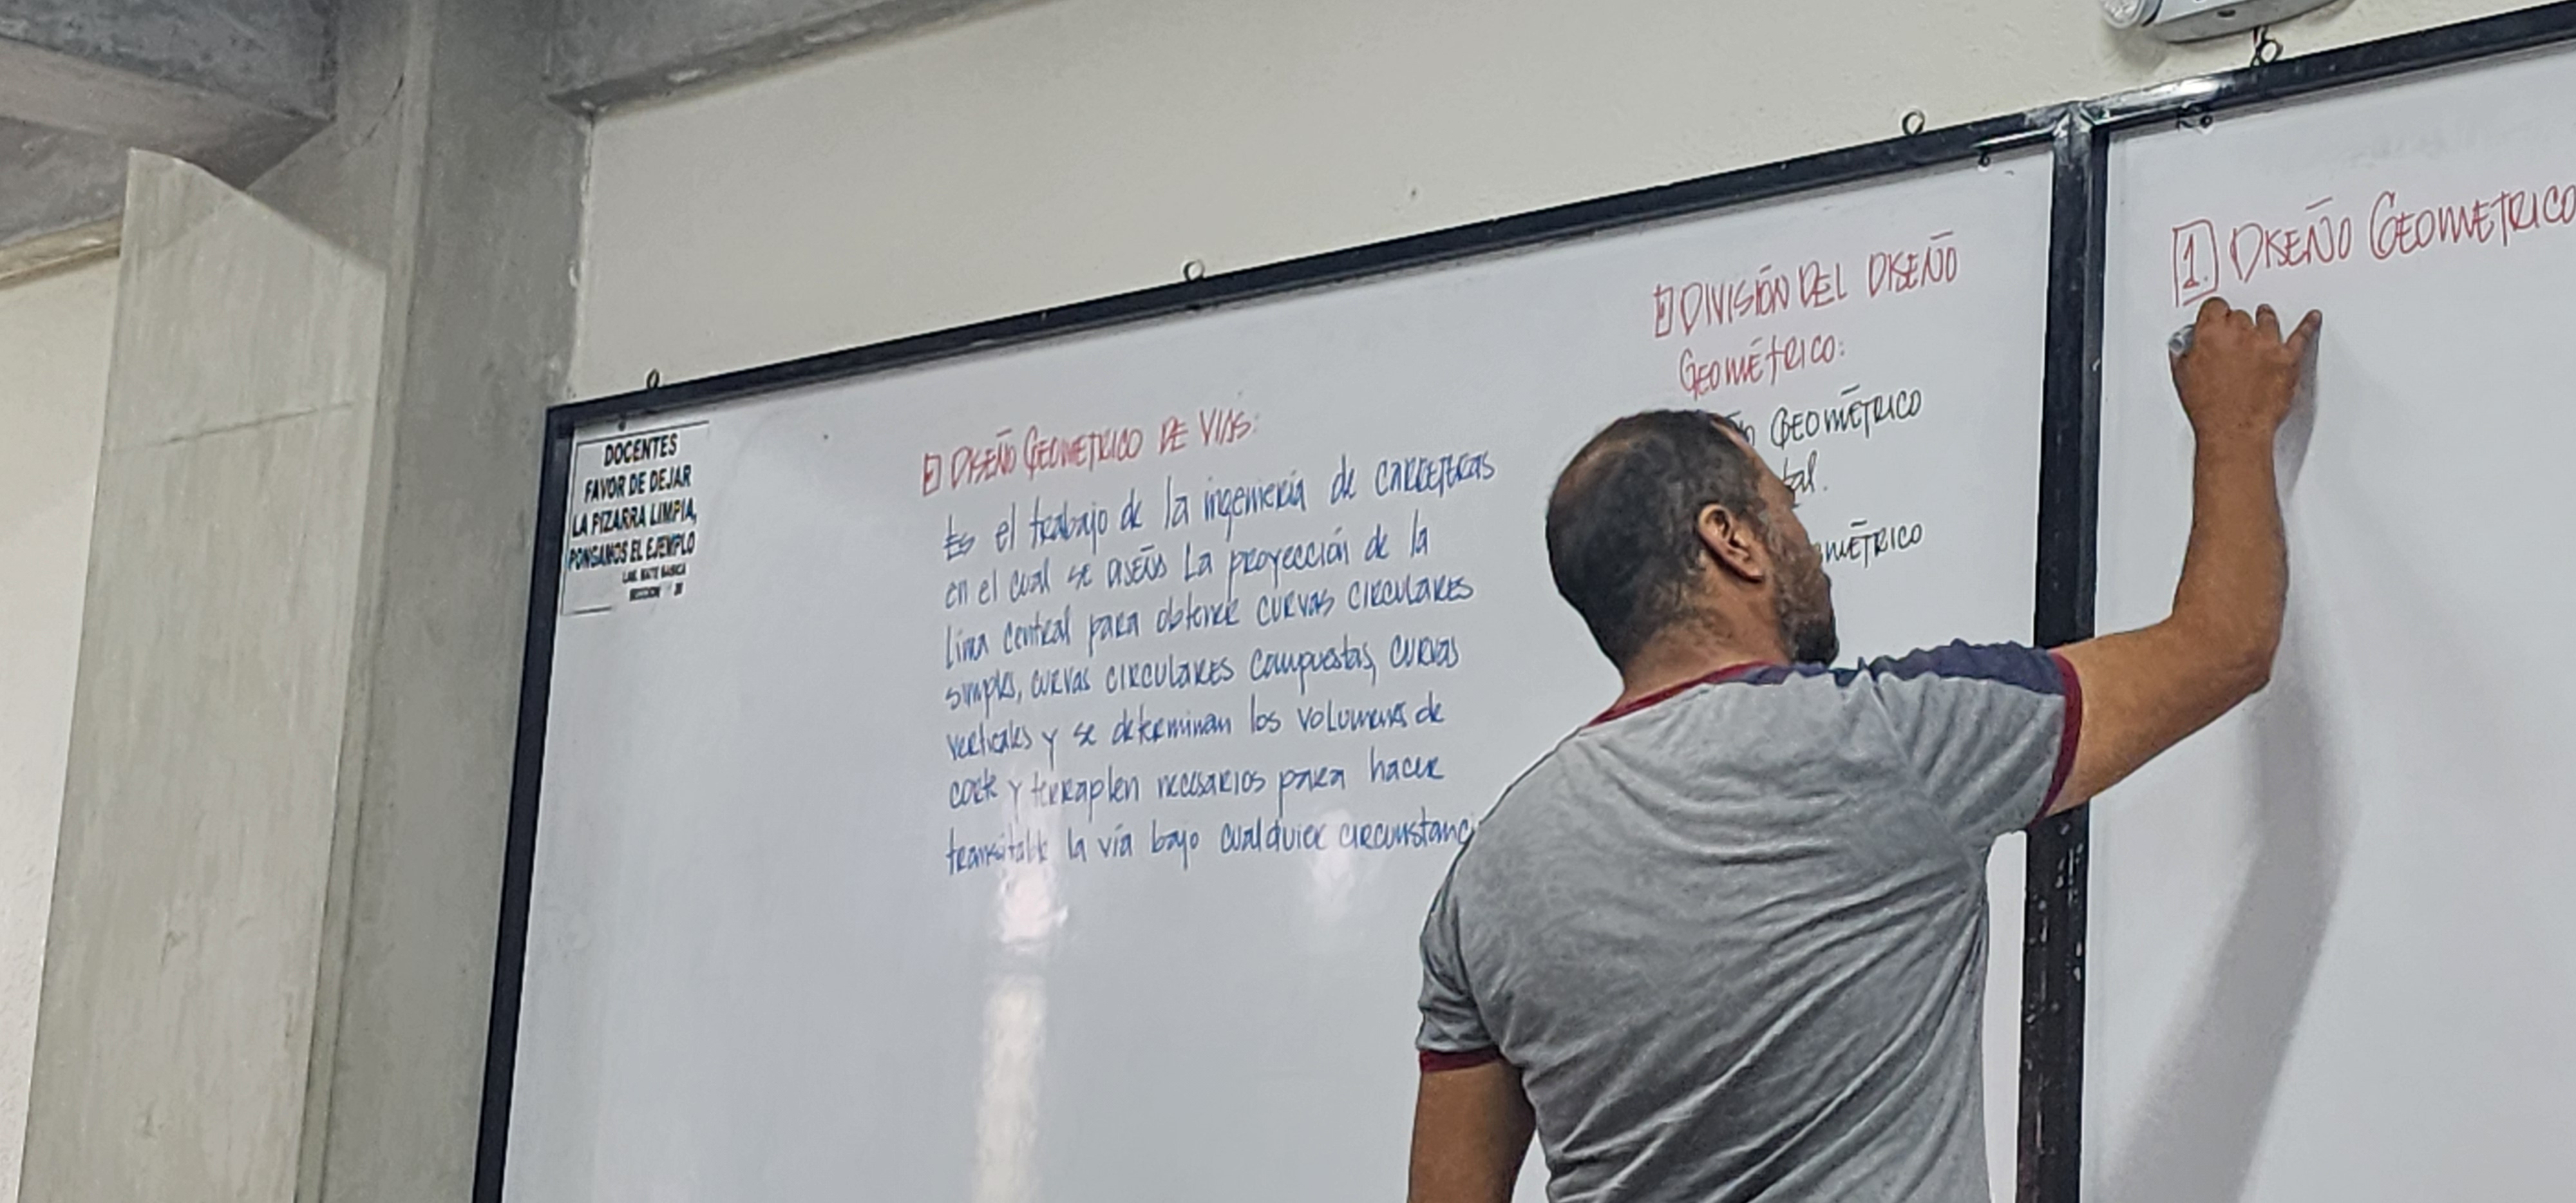 DOCENTES
FAVOR DE DEJAR
LA PIZARRA LIMPIA,
PONGAMOS EL EJEMPLO
DISEÑO GEOMETRICO DE VIAS:
Es el trabajo de la ingeniería de CARRETERAS
en el cual se diseña La proyección de la
linea central para obtener curvas CIRCULARES
simples, curvas CIRCULARES compuestas, curvas
verticales y se determinan los volumenes de
corte y terraplen necesarios para hacer
transitable la vía bajo cualquier circunstanci
DIVISIÓN DEL DISEÑO
GEOMÉTRICO:
GEOMÉTRICO
tal.
MÉTRICO
1. DISEÑO GEOMETRICO